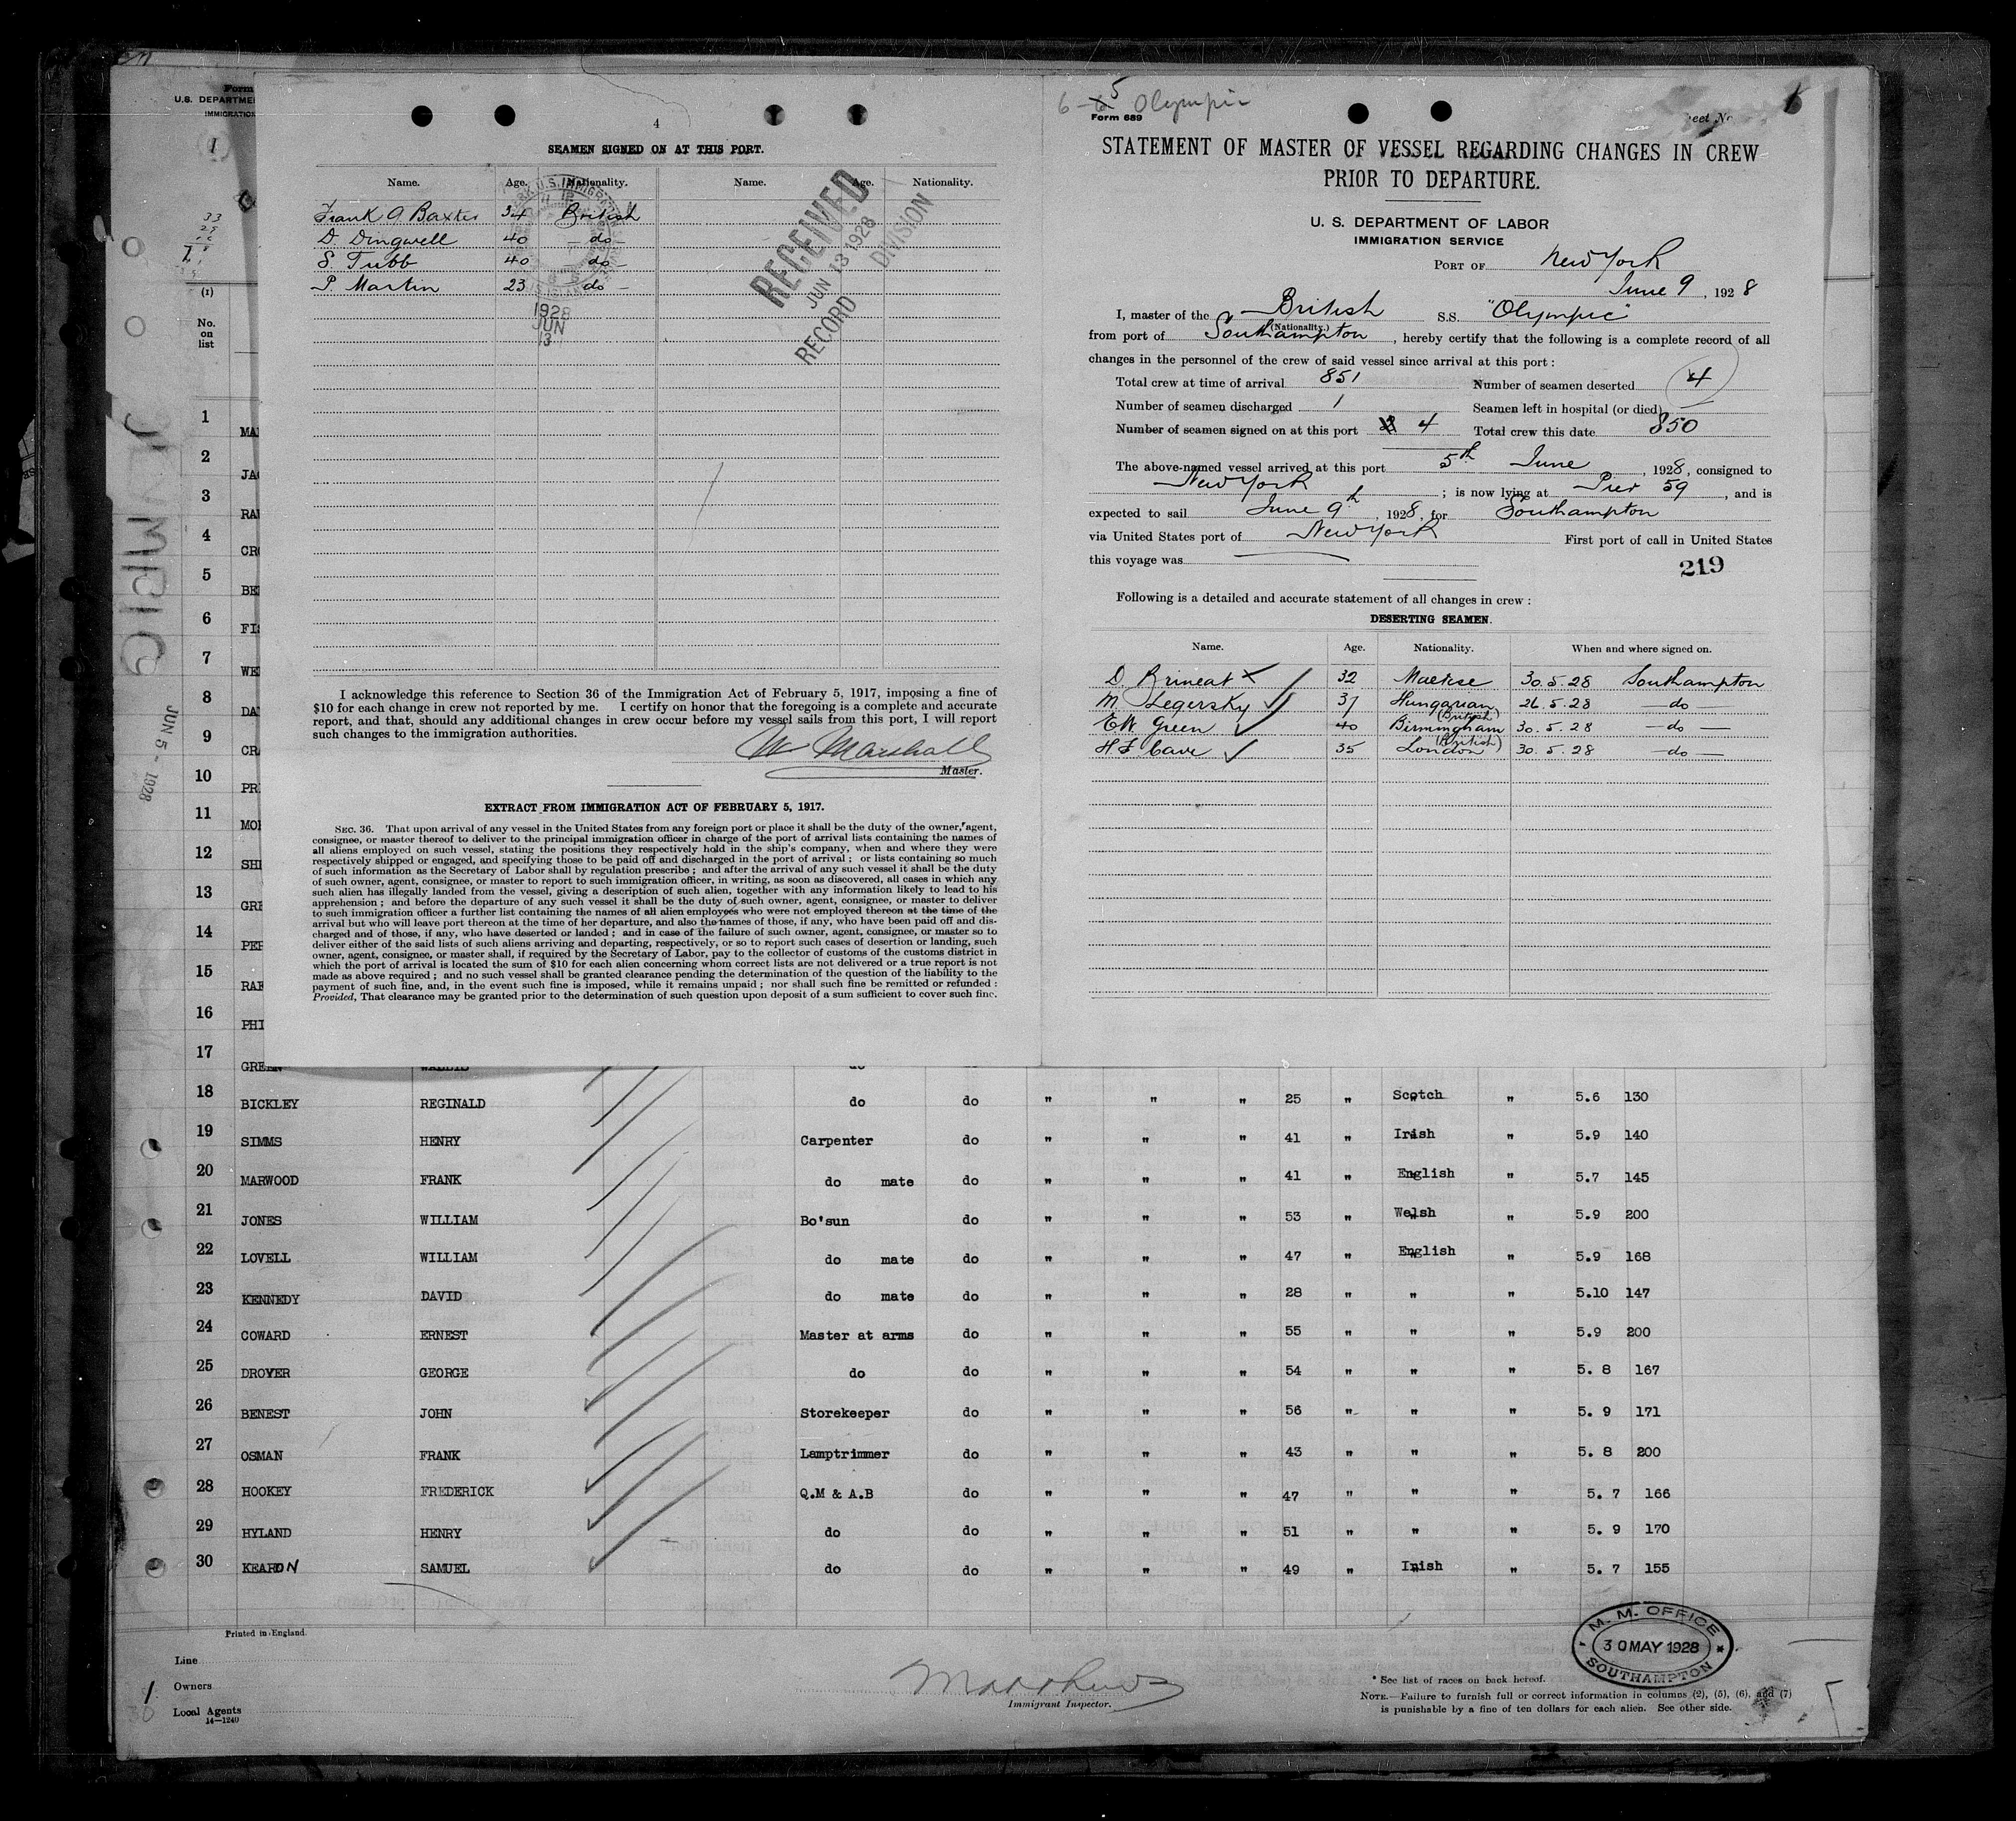 Form
U.S. DEPARTME
IMMIGRATION
1
(1)
No.
on
list
OLYMPIC
JUN 5 - 1928
4
SEAMEN SIGNED ON AT THIS PORT.
Name. Age. Nationality. Name. Age. Nationality.
Frank A Baxter 34 British
D. Dingwell 40 - do -
S Tubb 40 - do -
P Martin 23 - do -
1928
JUN
13
RECEIVED
JUN 13 1928
RECORD DIVISION
I acknowledge this reference to Section 36 of the Immigration Act of February 5, 1917, imposing a fine of
$10 for each change in crew not reported by me. I certify on honor that the foregoing is a complete and accurate
report, and that, should any additional changes in crew occur before my vessel sails from this port, I will report
such changes to the immigration authorities.
W Marshall
Master.
EXTRACT FROM IMMIGRATION ACT OF FEBRUARY 5, 1917.
SEC. 36. That upon arrival of any vessel in the United States from any foreign port or place it shall be the duty of the owner, agent,
consignee, or master thereof to deliver to the principal immigration officer in charge of the port of arrival lists containing the names of
all aliens employed on such vessel, stating the positions they respectively hold in the ship's company, when and where they were
respectively shipped or engaged, and specifying those to be paid off and discharged in the port of arrival; or lists containing so much
of such information as the Secretary of Labor shall by regulation prescribe; and after the arrival of any such vessel it shall be the duty
of such owner, agent, consignee, or master to report to such immigration officer, in writing, as soon as discovered, all cases in which any
such alien has illegally landed from the vessel, giving a description of such alien, together with any information likely to lead to his
apprehension; and before the departure of any such vessel it shall be the duty of such owner, agent, consignee, or master to deliver
to such immigration officer a further list containing the names of all alien employees who were not employed thereon at the time of the
arrival but who will leave port thereon at the time of her departure, and also the names of those, if any, who have been paid off and dis-
charged and of those, if any, who have deserted or landed; and in case of the failure of such owner, agent, consignee, or master so to
deliver either of the said lists of such aliens arriving and departing, respectively, or so to report such cases of desertion or landing, such
owner, agent, consignee, or master shall, if required by the Secretary of Labor, pay to the collector of customs of the customs district in
which the port of arrival is located the sum of $10 for each alien concerning whom correct lists are not delivered or a true report is not
made as above required; and no such vessel shall be granted clearance pending the determination of the question of the liability to the
payment of such fine, and, in the event such fine is imposed, while it remains unpaid; nor shall such fine be remitted or refunded:
Provided, That clearance may be granted prior to the determination of such question upon deposit of a sum sufficient to cover such fine.
6-5 Olympic
Form 689
eet No
1
STATEMENT OF MASTER OF VESSEL REGARDING CHANGES IN CREW
PRIOR TO DEPARTURE.
U. S. DEPARTMENT OF LABOR
IMMIGRATION SERVICE
PORT OF New York
June 9, 1928
I, master of the British S.S. "Olympic"
(Nationality.)
from port of Southampton, hereby certify that the following is a complete record of all
changes in the personnel of the crew of said vessel since arrival at this port:
Total crew at time of arrival 851 Number of seamen deserted 4
Number of seamen discharged 1 Seamen left in hospital (or died) —
Number of seamen signed on at this port 4 Total crew this date 850
The above-named vessel arrived at this port 5th June, 1928, consigned to
New York; is now lying at Pier 59, and is
expected to sail June 9th, 1928, for Southampton
via United States port of New York First port of call in United States
this voyage was —
219
Following is a detailed and accurate statement of all changes in crew:
DESERTING SEAMEN.
Name. Age. Nationality. When and where signed on.
D. Brincat x 32 Maltese 30.5.28 Southampton
M. Legersky 37 Hungarian 26.5.28 - do -
E.W. Green 40 Birmingham (British) 30.5.28 - do -
H F Cave 35 London (British) 30.5.28 - do -
1 MA
2 JA
3 RA
4 CRO
5 BE
6 FIS
7 WE
8 DA
9 CRA
10 PRI
11 MO
12 SHI
13 GRE
14 PEP
15 RAF
16 PHI
17 GREEN WALLIS do
18 BICKLEY REGINALD do do " " " 25 " Scotch " 5.6 130
19 SIMMS HENRY Carpenter do " " " 41 " Irish " 5.9 140
20 MARWOOD FRANK do mate do " " " 41 " English " 5.7 145
21 JONES WILLIAM Bo'sun do " " " 53 " Welsh " 5.9 200
22 LOVELL WILLIAM do mate do " " " 47 " English " 5.9 168
23 KENNEDY DAVID do mate do " " " 28 " " " 5.10 147
24 COWARD ERNEST Master at arms do " " " 55 " " " 5.9 200
25 DROYER GEORGE do do " " " 54 " " " 5. 8 167
26 BENEST JOHN Storekeeper do " " " 56 " " " 5. 9 171
27 OSMAN FRANK Lamptrimmer do " " " 43 " " " 5. 8 200
28 HOOKEY FREDERICK Q.M & A.B do " " " 47 " " " 5. 7 166
29 HYLAND HENRY do do " " " 51 " " " 5. 9 170
30 KEARON SAMUEL do do " " " 49 " Irish " 5. 7 155
Printed in England.
Line
Owners
Local Agents
14—1240
1
30
Immigrant Inspector.
M. M. OFFICE
30 MAY 1928
SOUTHAMPTON
* See list of races on back hereof.
NOTE.—Failure to furnish full or correct information in columns (2), (5), (6), and (7)
is punishable by a fine of ten dollars for each alien. See other side.